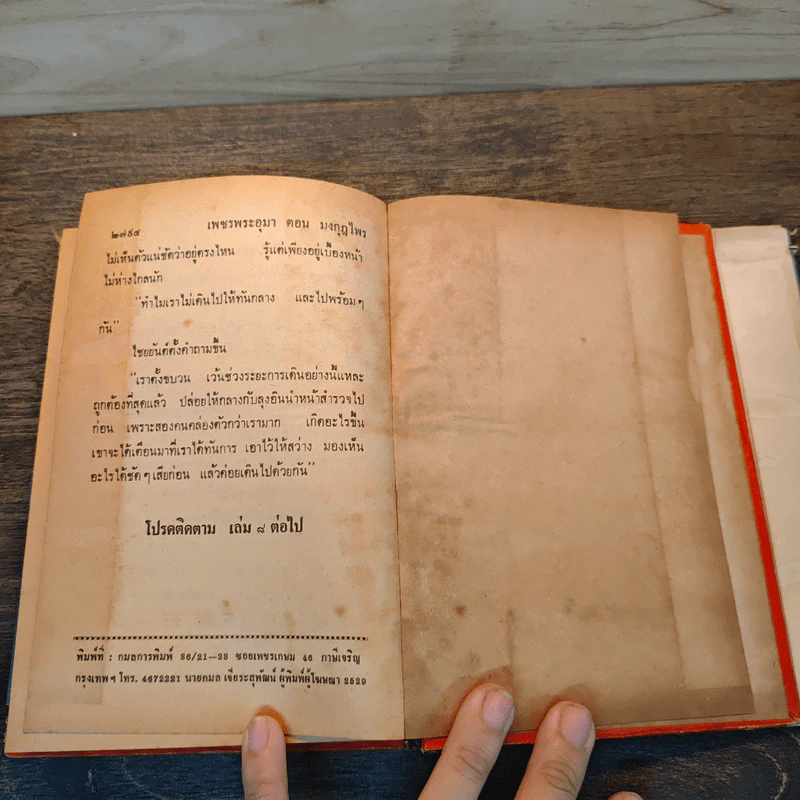 ๒๗๙๔ เพชรพระอุมา ตอน มงกุฎไพร
ไม่เห็นตัวแน่ชัดว่าอยู่ตรงไหน รู้แต่เพียงอยู่เบื้องหน้า
ไม่ห่างไกลนัก
“ทำไมเราไม่เดินไปให้ทันกลาง และไปพร้อมๆ
กัน”
ไชยยันต์ตั้งคำถามขึ้น
“เราตั้งขบวน เว้นช่วงระยะการเดินอย่างนี้แหละ
ถูกต้องที่สุดแล้ว ปล่อยให้กลางกับลุงอินนำหน้าสำรวจไป
ก่อน เพราะสองคนคล่องตัวกว่าเรามาก เกิดอะไรขึ้น
เขาจะได้เตือนมาที่เราได้ทันการ เอาไว้ให้สว่าง มองเห็น
อะไรได้ชัดๆเสียก่อน แล้วค่อยเดินไปด้วยกัน”
โปรดติดตาม เล่ม ๘ ต่อไป
พิมพ์ที่ : กมลการพิมพ์ 36/21—23 ซอยเพชรเกษม 46 ภาษีเจริญ
กรุงเทพฯ โทร. 4672221 นายกมล เจียระสุพัฒน์ ผู้พิมพ์ผู้โฆษณา 2529